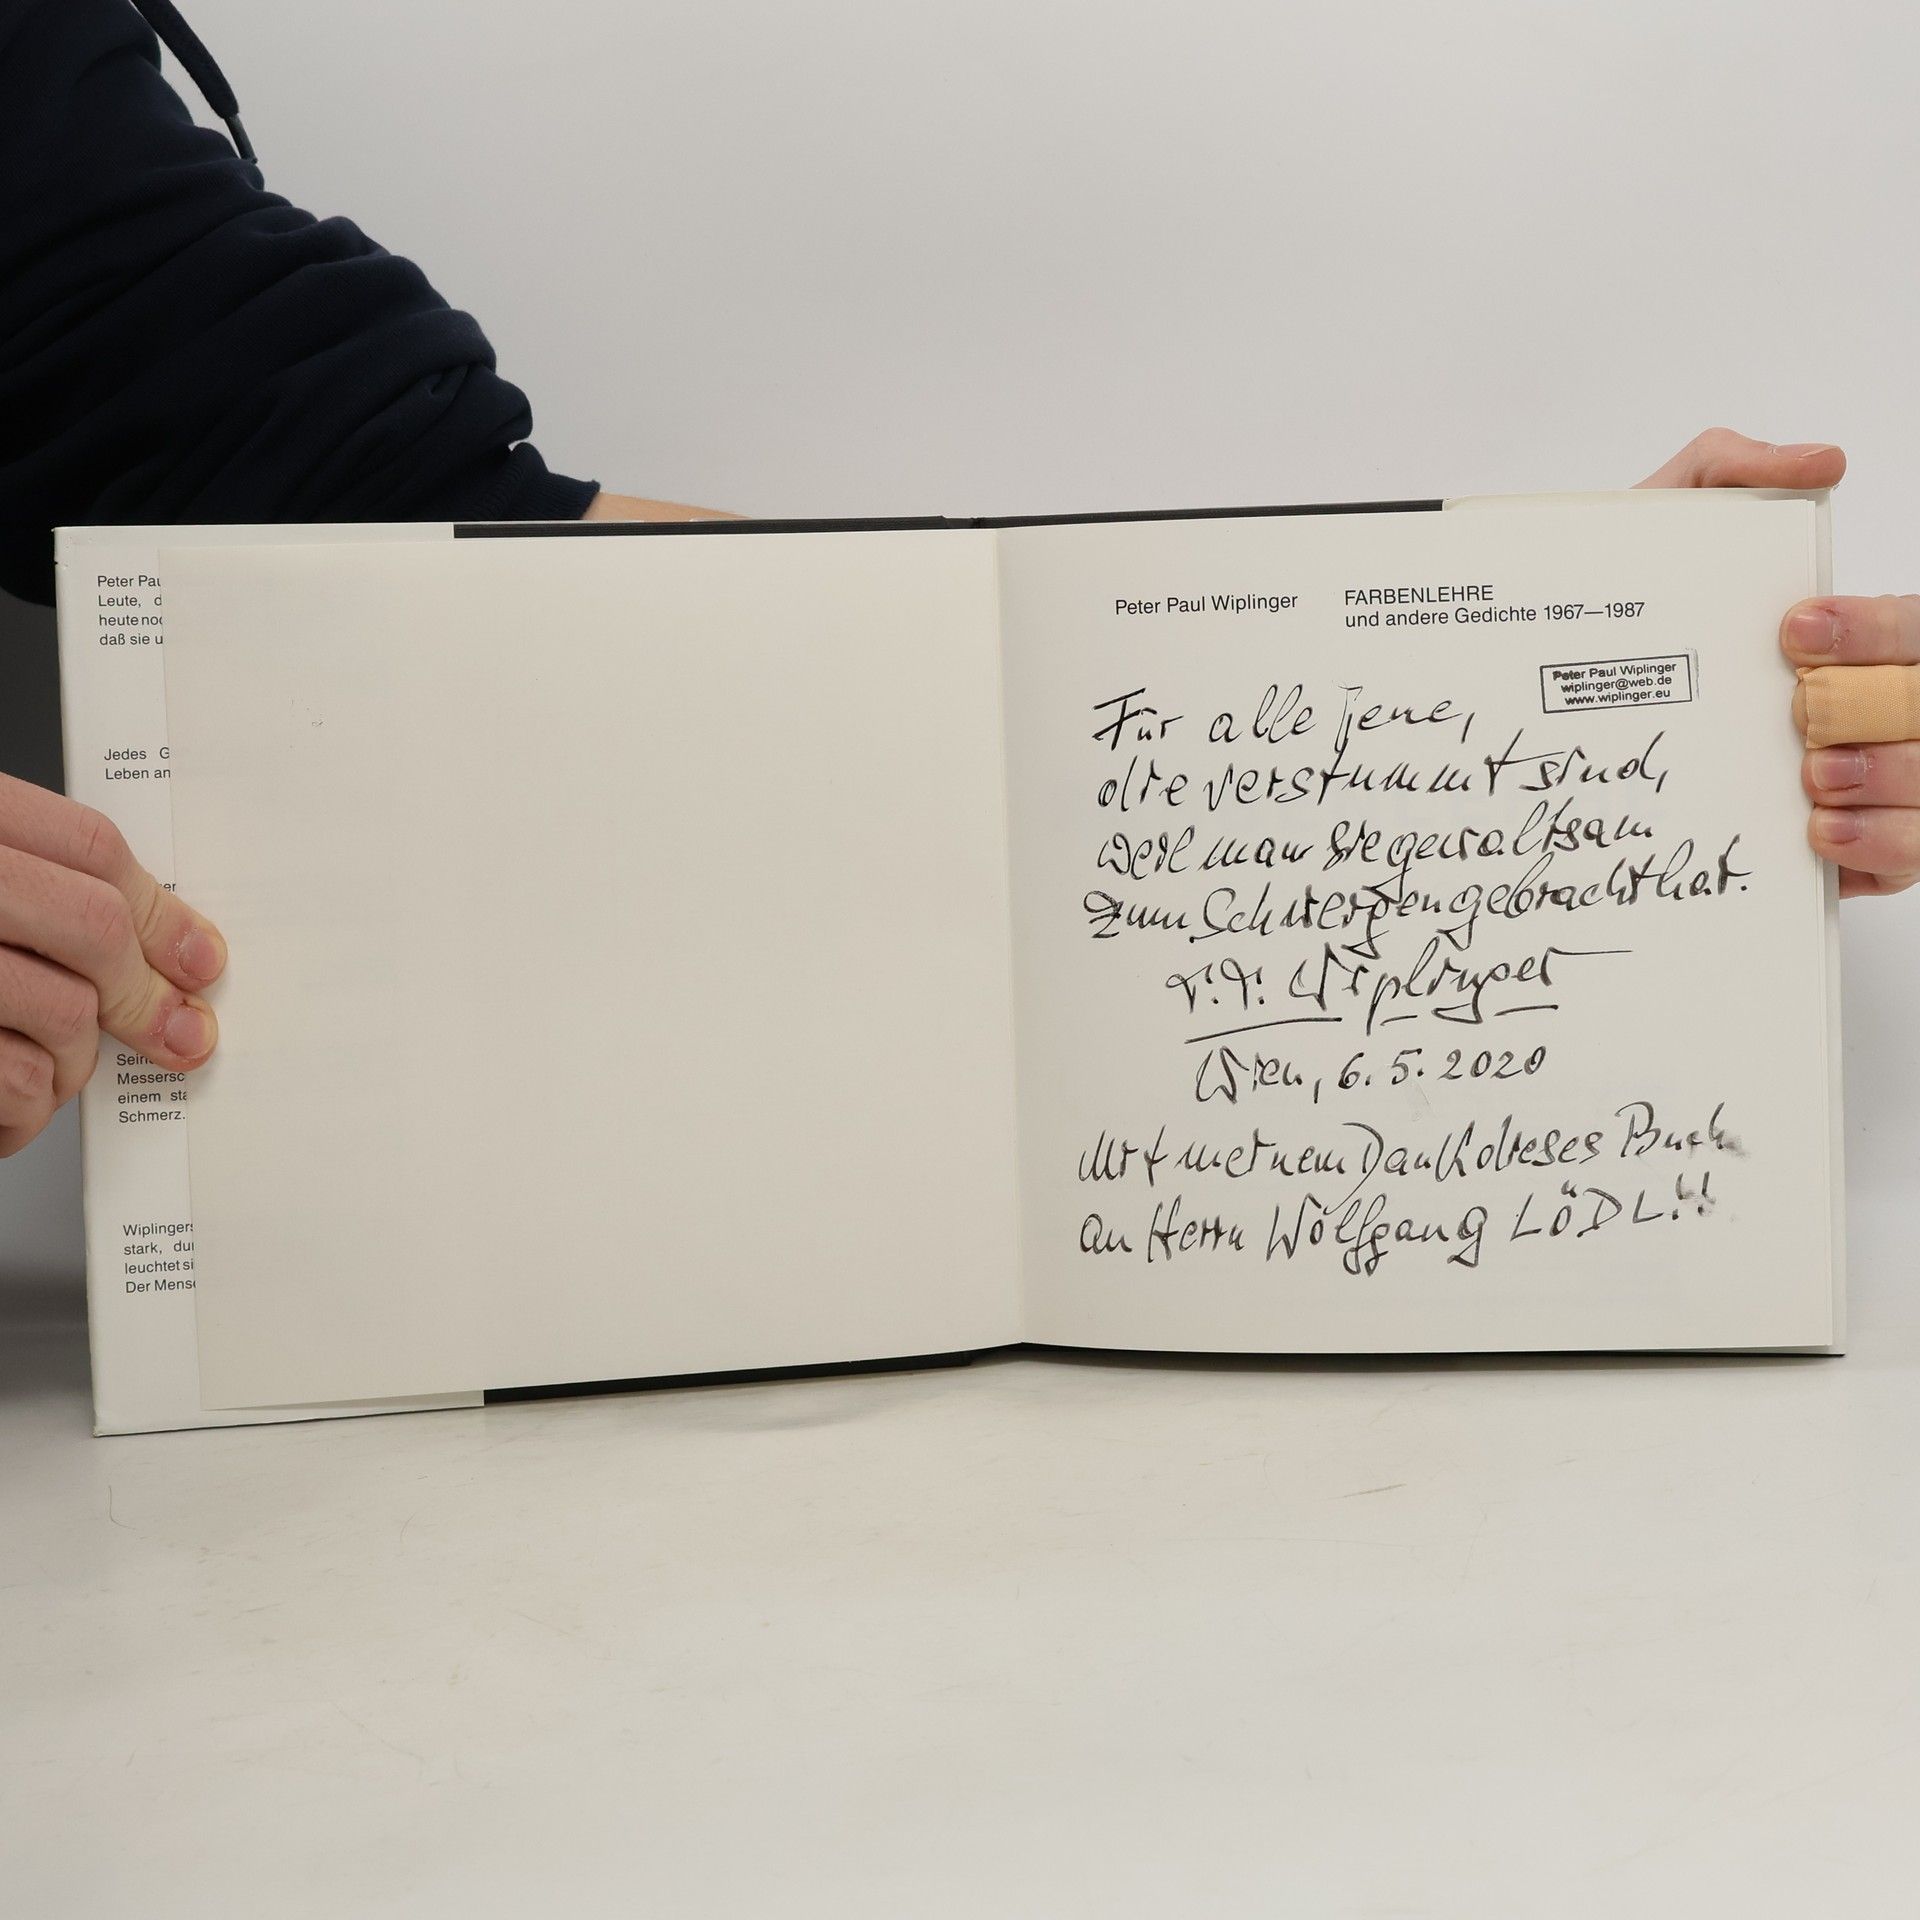 Peter Pau
Leute, d
heute noc
daß sie u
Jedes G
Leben an
er
Sein
Messersc
einem sta
Schmerz.
Wiplingers
stark, du
leuchtet si
Der Mensc
Peter Paul Wiplinger
FARBENLEHRE
und andere Gedichte 1967—1987
Peter Paul Wiplinger
wiplinger@web.de
www.wiplinger.eu
Für alle jene,
die verstummt sind,
weil man sie gewaltsam
zum Schweigen gebracht hat.
P.P. Wiplinger
Wien, 6.5.2020
Mit meinem Dank dieses Buch
an Herrn Wolfgang LÖDL!!